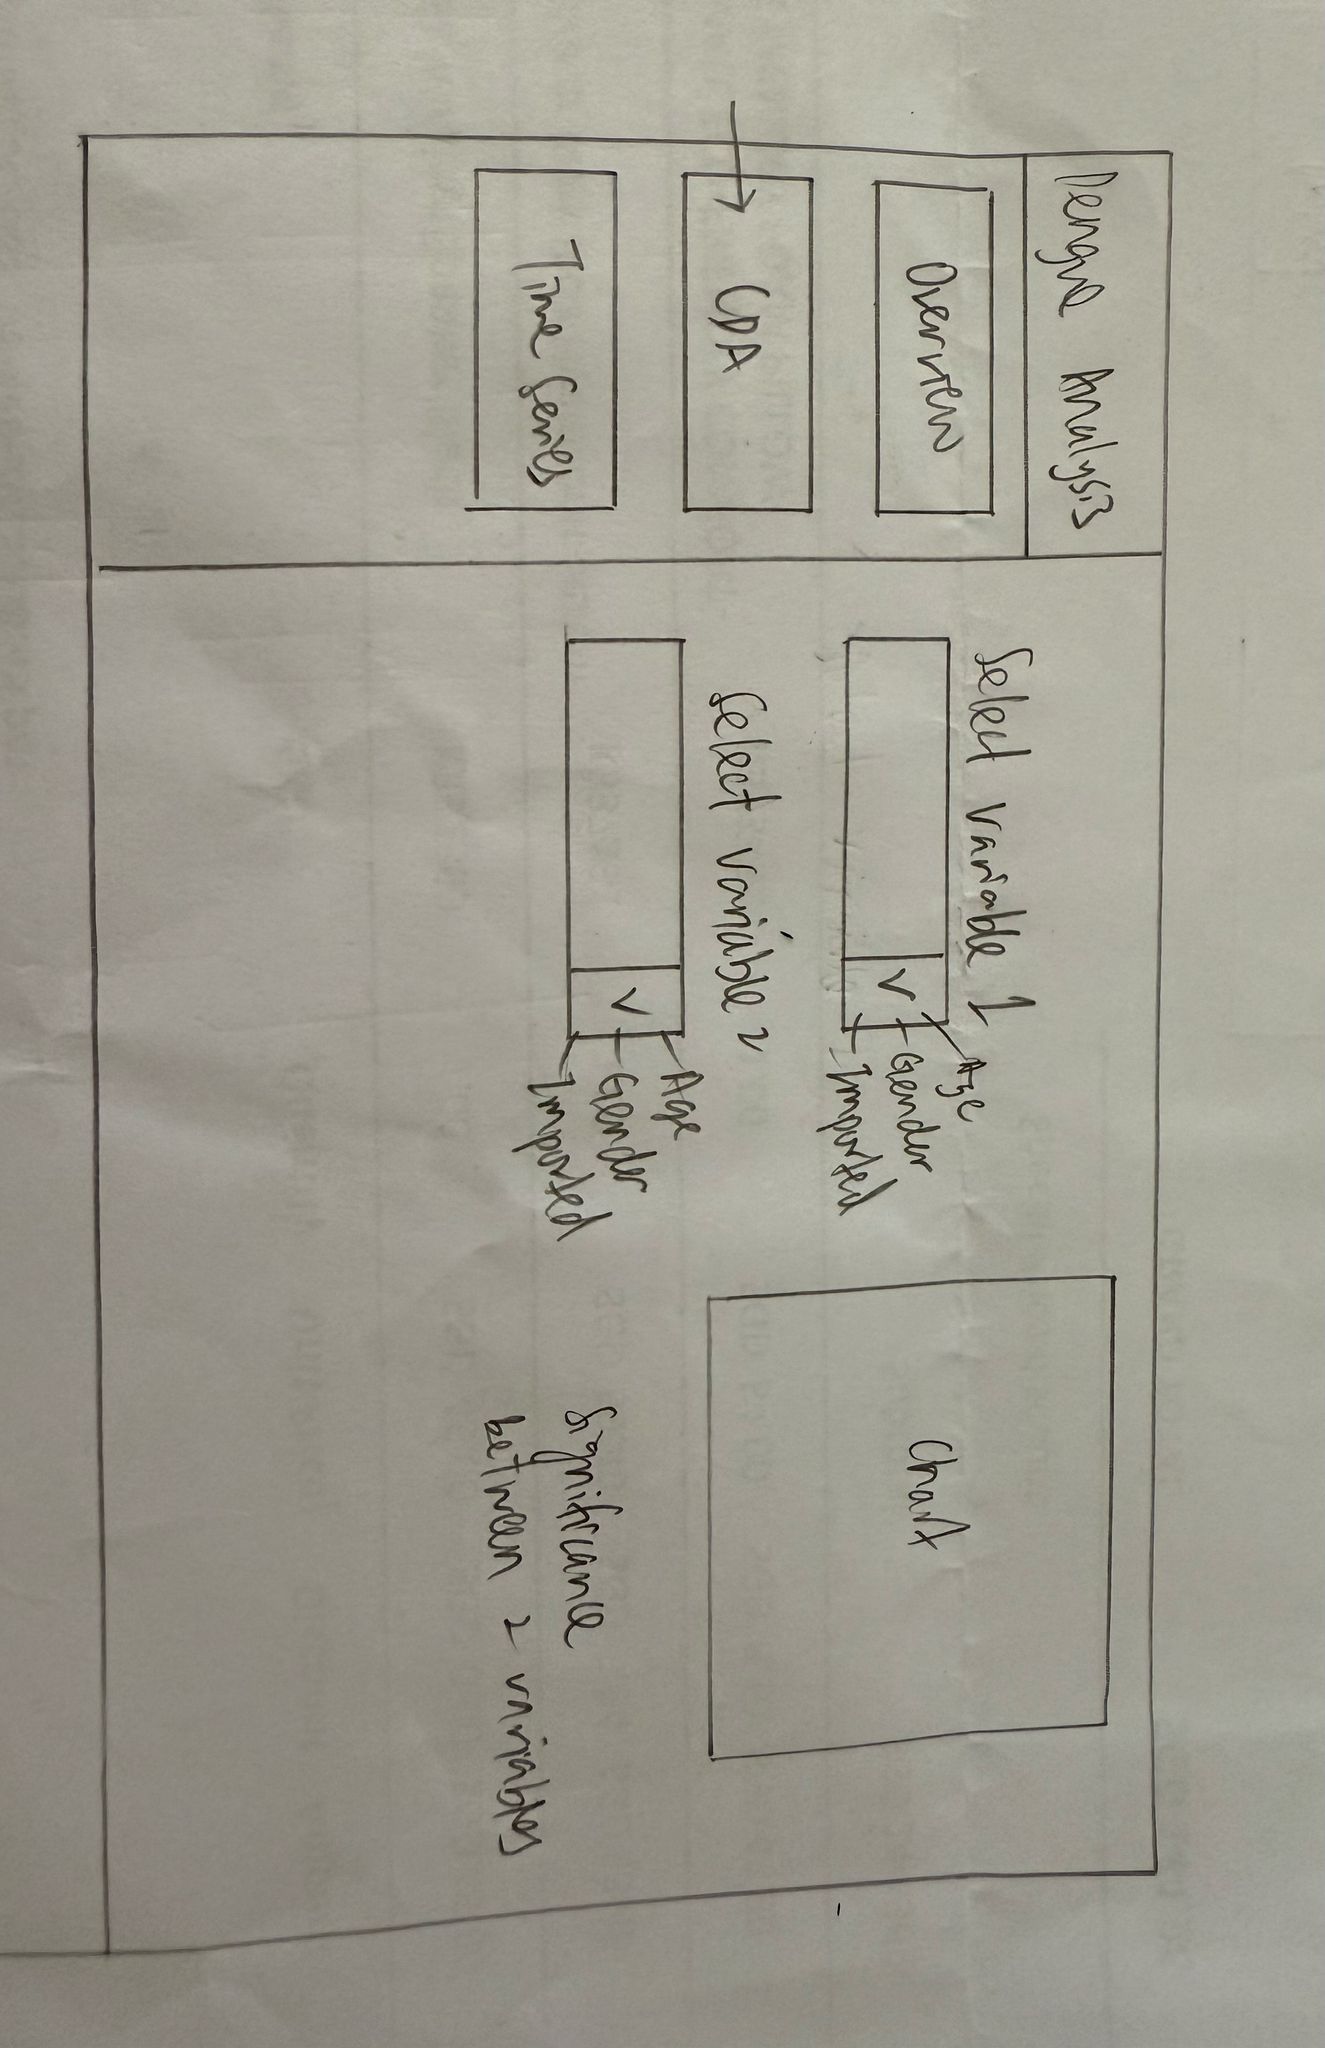 Dengue Analysis
Overview
CDA
Time Series
Select variable 1
V
Age
Gender
Imported
Select variable 2
V
Age
Gender
Imported
Chart
Significance
between 2 variables